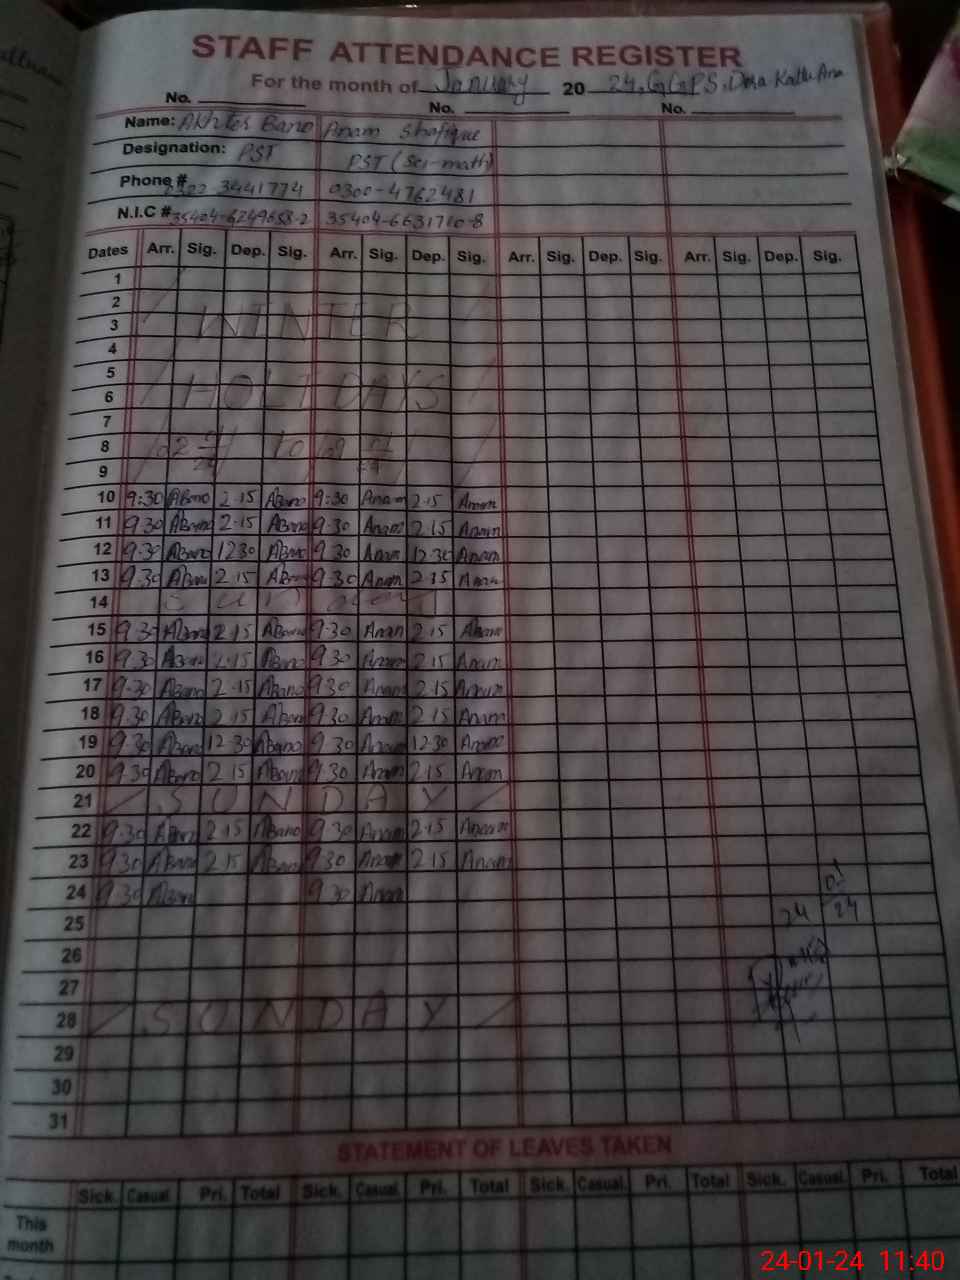 STAFF ATTENDANCE REGISTER
For the month of January 20 24, GGPS, Dera Kallu Ana
No. No. No.
Name: Akhter Bano Anam Shafique
Designation: PST PST (Sci-math)
Phone # 3441774 0300-4762481
N.I.C # 35404-6249658-2 35404-6631710-8
Dates Arr. Sig. Dep. Sig. Arr. Sig. Dep. Sig. Arr. Sig. Dep. Sig. Arr. Sig. Dep. Sig.
1
2
3 WINTER
4
5
6 HOLIDAYS
7
8 to
9
10 9:30 ABano 2.15 ABano 9:30 Anam 2.15 Anam
11 9.30 ABano 2.15 ABano 9.30 Anam 2.15 Anam
12 9.30 ABano 1230 ABano 9.30 Anam 12.30 Anam
13 9.30 ABano 2.15 ABano 9.30 Anam 2.15 Anam
14 Sunday
15 9.30 ABano 2.15 ABano 9.30 Anam 2.15 Anam
16 9.30 ABano 2.15 ABano 9.30 Anam 2.15 Anam
17 9.30 ABano 2.15 ABano 9.30 Anam 2.15 Anam
18 9.30 ABano 2.15 ABano 9.30 Anam 2.15 Anam
19 9.30 ABano 12.30 ABano 9.30 Anam 12.30 Anam
20 9.30 ABano 2.15 ABano 9.30 Anam 2.15 Anam
21 SUNDAY
22 9.30 ABano 2.15 ABano 9.30 Anam 2.15 Anam
23 9.30 ABano 2.15 ABano 9.30 Anam 2.15 Anam
24 9.30 ABano 9.30 Anam
25 24 24
26
27
28 SUNDAY
29
30
31
STATEMENT OF LEAVES TAKEN
Sick. Casual. Pri. Total Sick. Casual. Pri. Total Sick. Casual. Pri. Total Sick. Casual. Pri. Total
This
month
24-01-24 11:40